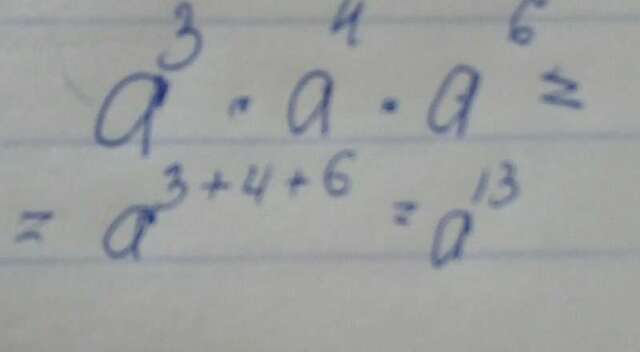 a³ · a⁴ · a⁶ =
= a³⁺⁴⁺⁶ = a¹³